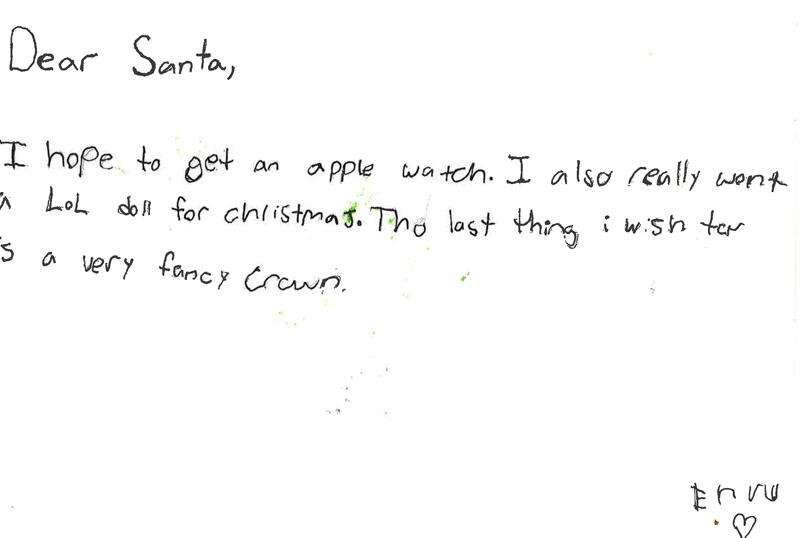 Dear Santa,
I hope to get an apple watch. I also really want
a LoL doll for christmas. The last thing i wish for
s a very fancy Crown.